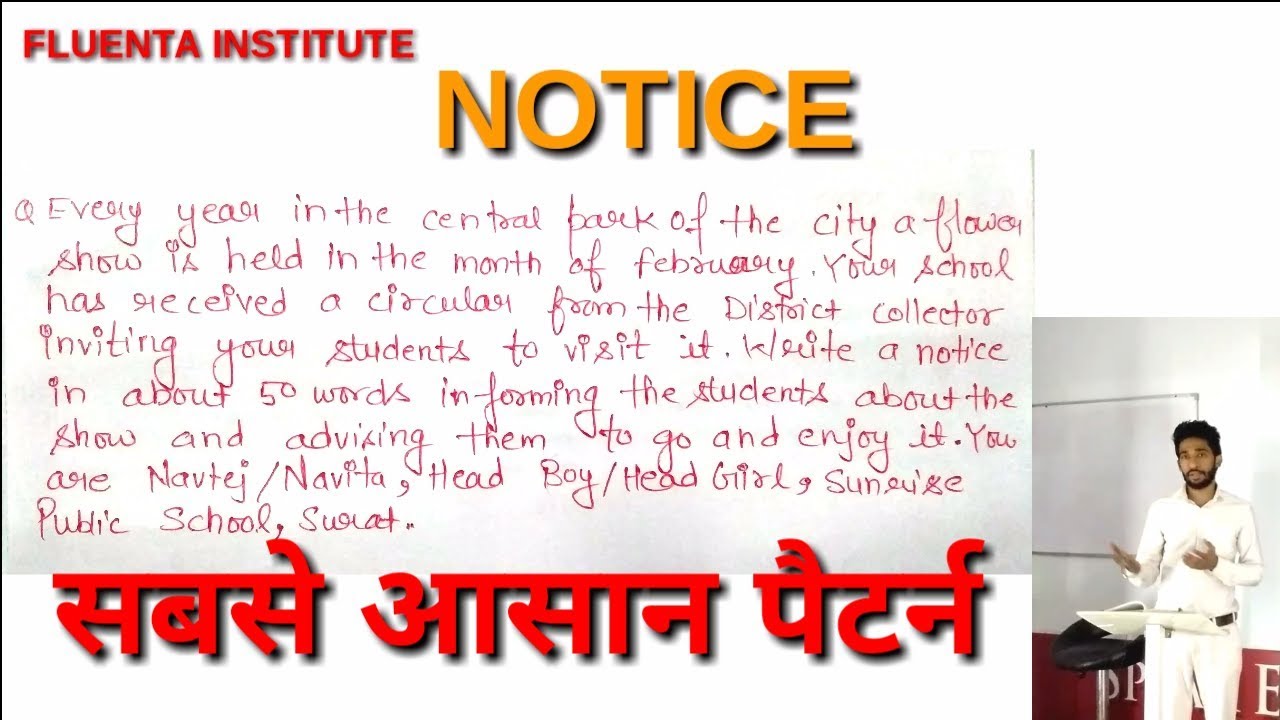 FLUENTA INSTITUTE
NOTICE
Q Every year in the central park of the city a flower
show is held in the month of february. Your school
has received a circular from the District collector
inviting your students to visit it. Write a notice
in about 50 words informing the students about the
show and advising them to go and enjoy it. You
are Navtej/Navita, Head Boy/Head Girl, Sunrise
Public School, Surat.
सबसे आसान पैटर्न